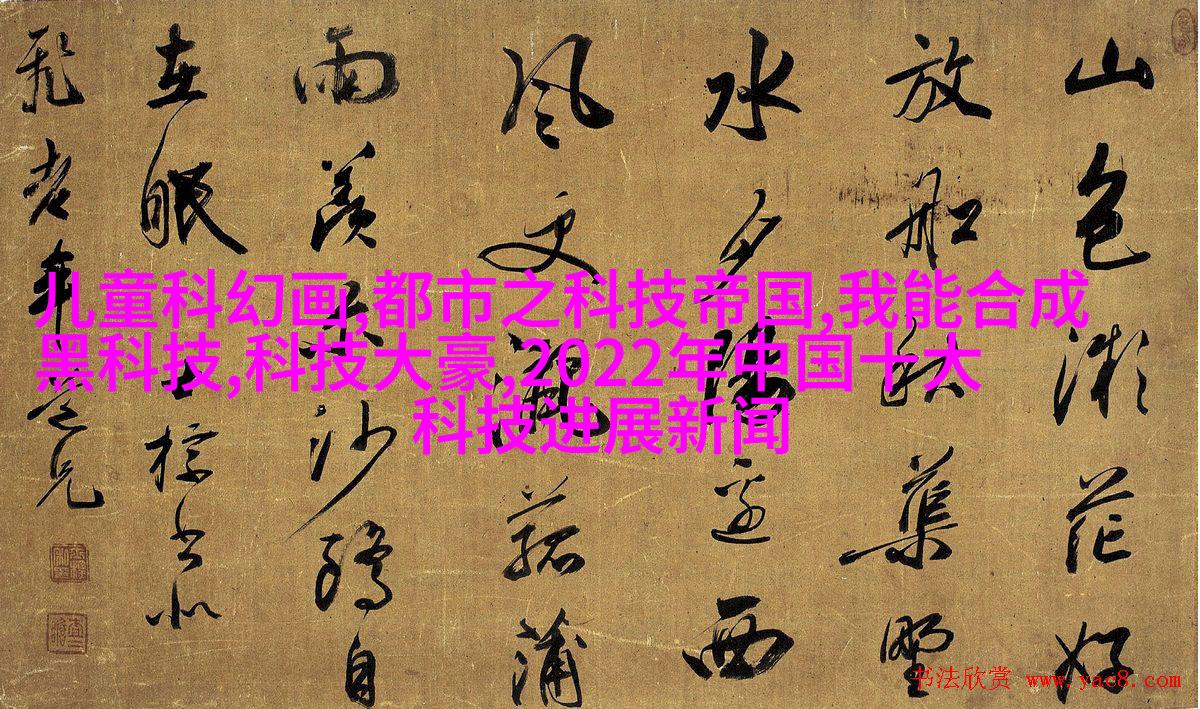 儿童科幻画,都市之科技帝国,我能合成
黑科技,科技大豪,2022年中国十大
科技进展新闻
山色茫好
放船野
水夕陽西
風更菰蒲
雨沙鷗自
在眠士標書似
飛老年兄
书法欣赏 www.yac8.com